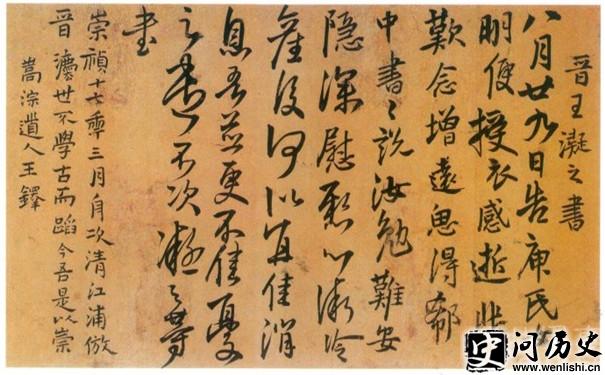 晋王凝之書
八月廿九日告庾氏女
明便授衣感逝悲
歎念增遠思得郗
中書々說汝勉難安
隱深慰懸心漸冷
產後何以宜佳消
息吾並更不佳憂
之遣不次凝之等
書
崇禎十六秊三月舟次清江浦倣
晋 澆世不學古而蹈今吾是以崇
嵩淙道人王鐸
问历史
www.wenlishi.cn